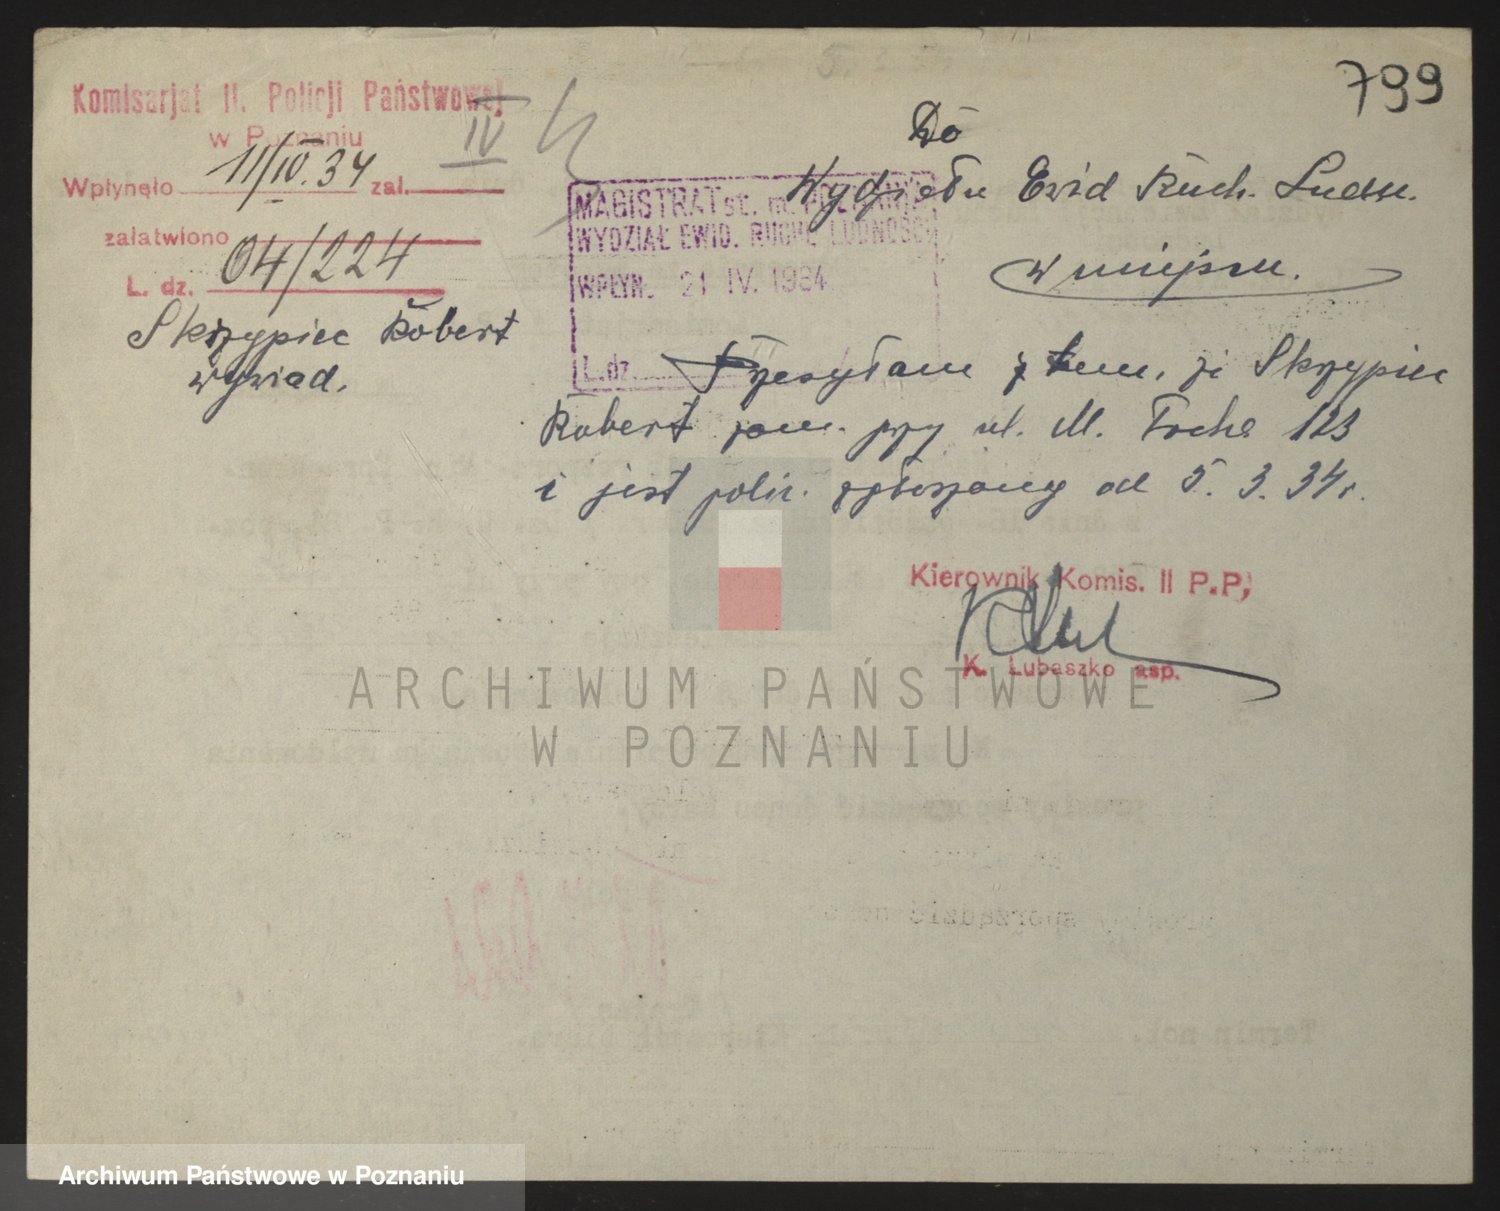 799
Komisarjat II. Policji Państwowej
w Poznaniu
Wpłynęło 11/IV. 34 zał.
IV
załatwiono
L. dz. 04/224
Skrzypiec Robert
wywiad.
Do
Wydziału Ewid Ruch. Ludn.
w miejscu.
MAGISTRAT st. m. POZNANIA
WYDZIAŁ EWID. RUCHU LUDNOŚCI
WPŁYN. 21 IV. 1934
L. dz.
Przesyłam z tem, że Skrzypiec
Robert zam. przy ul. M. Focha 123
i jest polic. zgłoszony od 5. 3. 34 r.
Kierownik Komis. II P.P.
K. Lubaszko asp.
ARCHIWUM PAŃSTWOWE
W POZNANIU
Archiwum Państwowe w Poznaniu